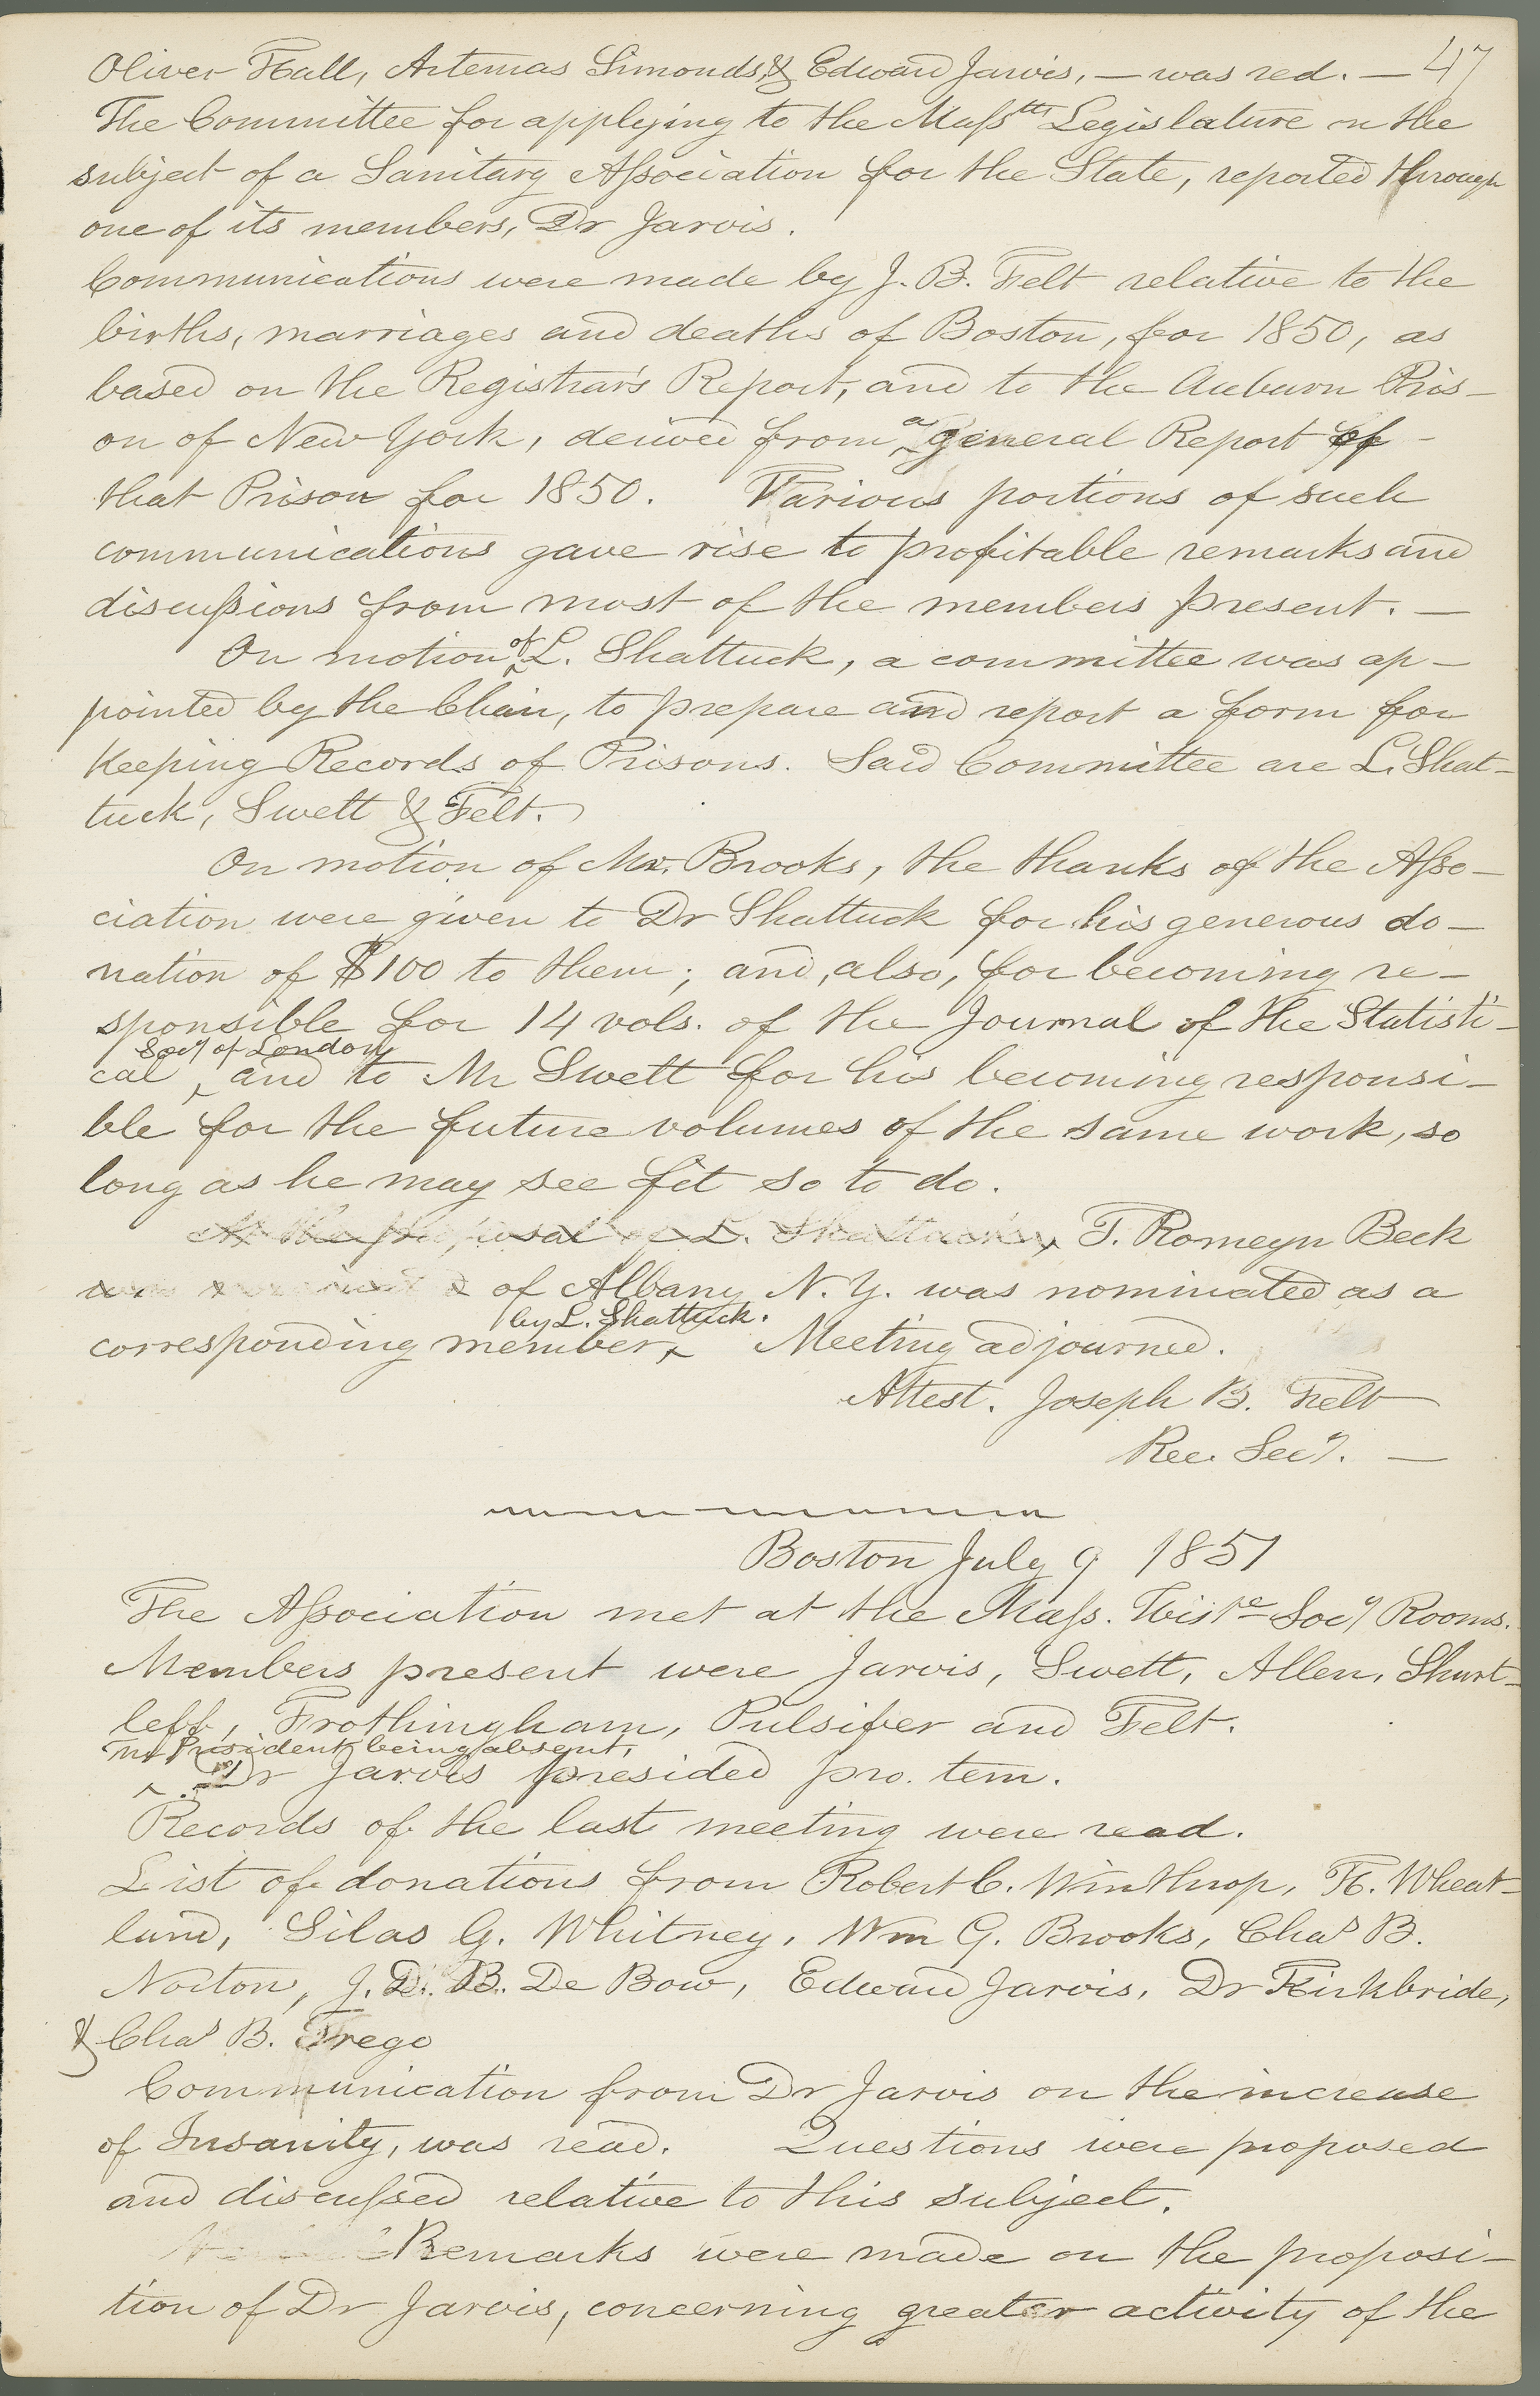 47
Oliver Hall, Artemas Simonds, & Edward Jarvis, — was red. —
The Committee for applying to the Masstts Legislature on the
subject of a Sanitary Association for the State, reported through
one of its members, Dr Jarvis.
Communications were made by J. B. Felt relative to the
births, marriages and deaths of Boston, for 1850, as
based on the Registrar's Report, and to the Auburn Pris-
on of New York, derived from a general Report of -
that Prison for 1850. Various portions of such
communications gave rise to profitable remarks and
discussions from most of the members present. —
On motion of L. Shattuck, a committee was ap-
pointed by the Chair, to prepare and report a form for
keeping Records of Prisons. Said Committee are L. Shat-
tuck, Swett & Felt.
On motion of Mr. Brooks, the thanks of the Asso-
ciation were given to Dr Shattuck for his generous do-
nation of $100 to them; and, also, for becoming re-
sponsible for 14 vols. of the Journal of the Statisti-
cal Socy of London, and to Mr Swett for his becoming responsi-
ble for the future volumes of the same work, so
long as he may see fit so to do.
At the proposal of L. Shattuck, T. Romeyn Beck
was nominated of Albany N. Y. was nominated as a
corresponding member by L. Shattuck. Meeting adjourned.
Attest. Joseph B. Felt
Rec. Secy. —
Boston July 9 1851
The Association met at the Mass. Histe Socy Rooms.
Members present were Jarvis, Swett, Allen, Shurt-
leff, Frothingham, Pulsifer and Felt.
The President being absent,
Dr Jarvis presided pro. tem.
Records of the last meeting were read.
List of donations from Robert C. Winthrop, H. Wheat-
land, Silas G. Whitney, Wm G. Brooks, Chas B.
Norton, J. D. B. De Bow, Edward Jarvis, Dr Kirkbride,
& Chas B. Trego
Communication from Dr Jarvis on the increase
of Insanity, was read. Questions were proposed
and discussed relative to this subject.
Remarks were made on the proposi-
tion of Dr Jarvis, concerning greater activity of the